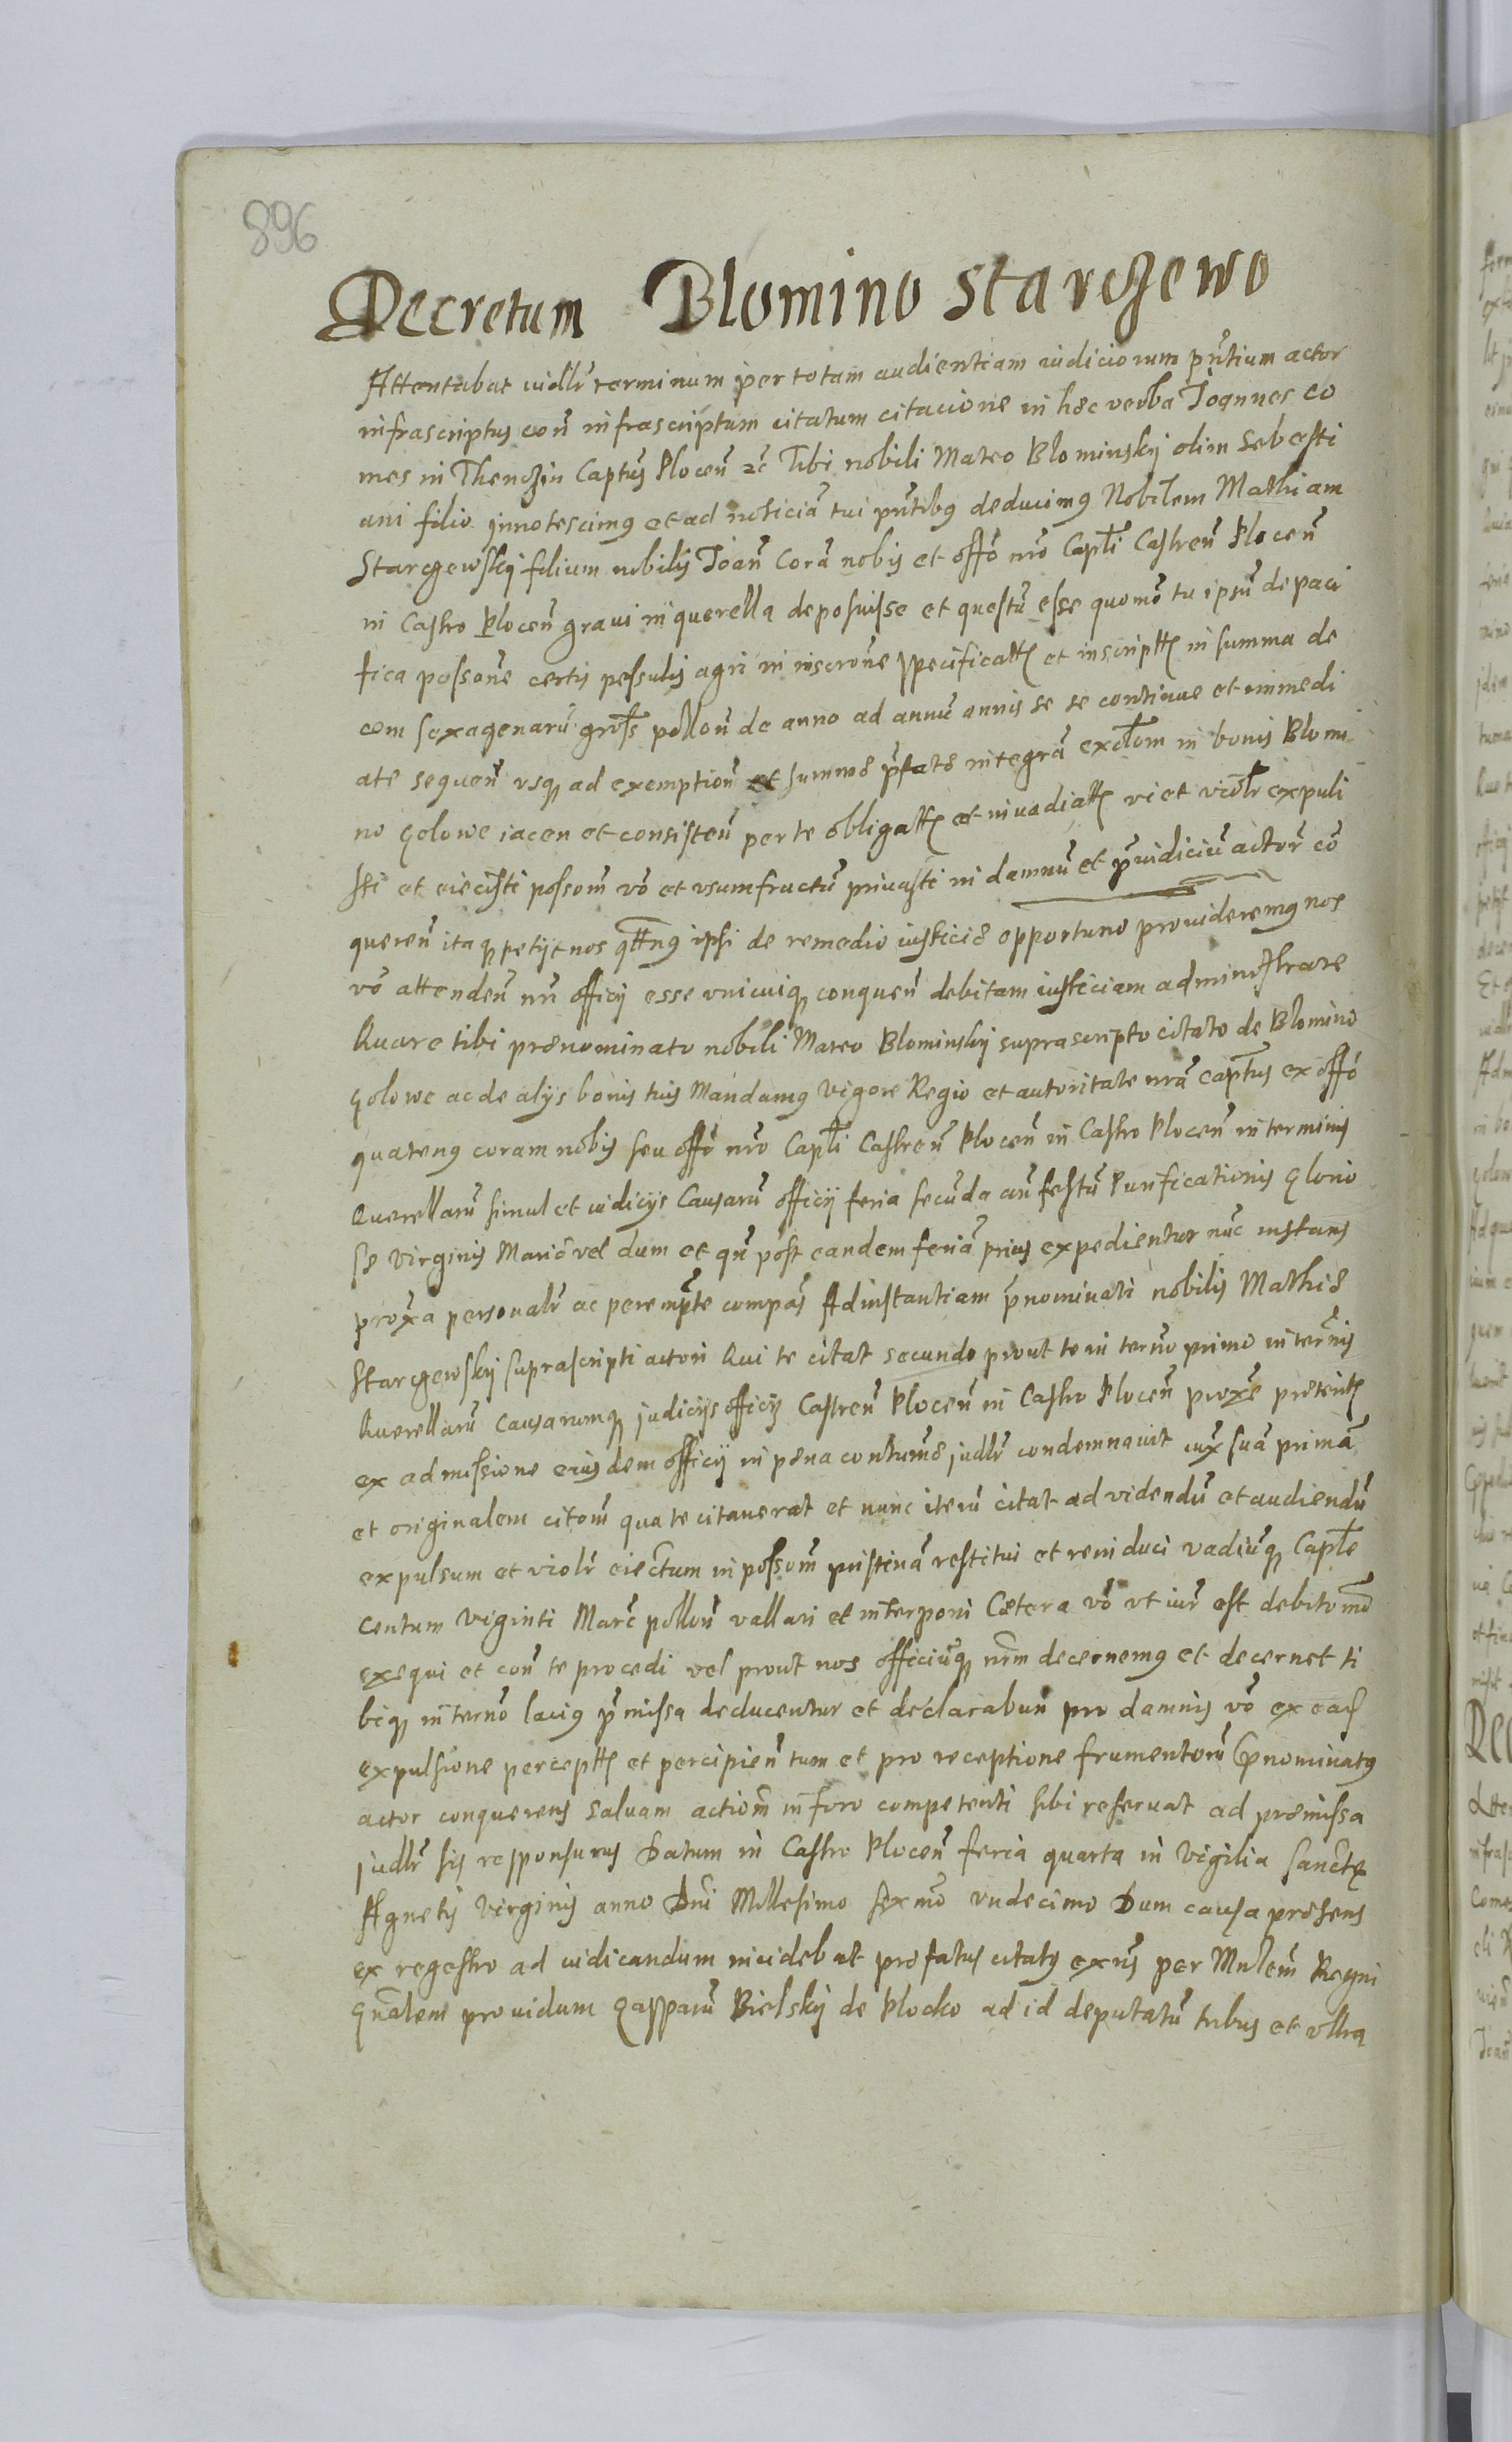 896
Decretum Blomino Starczewo
Attentabat iudlr terminum per totam audientiam iudiciorum pntium actor
infrascriptus con infrascriptum citatum citacione in hæc verba Joannes co
mes in Thenczin Captus Plocen etc Tibi nobili Mateo Blominskij olim Sebasti
ani filio innotescimus et ad noticia tui pntibus deducimus Nobilem Mathiam
Starczewskij filium nobilis Joan Cora nobis et offo nro Capli Castren Plocen
in Castro Plocen graui in querella deposuisse et questu esse quomo tu ipsu de paci
fica possone certis pessulis agri in inscrone specificatts et inscriptts in summa de
cem sexagenaru gross pollon de anno ad annu annis se se continue et immedi
ate sequen vsq ad exemption et summæ pfatæ integra exoltom in bonis Blomi
no Golowe iacen et consisten per te obligatts et inuadiatts vi et violtr expuli
sti et eiecisti possom vo et vsumfructu priuasti in damnu et piudiciu actor co
queren itaq petijt nos qttnus ipsi de remedio iusticiæ opportuno prouideremus nos
vo attenden nri officij esse vnicuiq conqueren debitam iusticiam administrare
Quare tibi prænominato nobili Mateo Blominskij suprascripto citato de Blomino
Golowe ac de alijs bonis tuis Mandamus vigore Regio et autoritate nra captus ex offo
quatenus coram nobis seu offo nro Capli Castren Plocen in Castro Plocen in terminis
Querellaru simul et iudicijs Causaru officij feria secuda an festu Purificationis Glorio
sæ Virginis Mariæ vel dum et qn post eandem feria prius expedientur nuc instans
proxa personalr ac perempte compas Ad instantiam pnominati nobilis Mathiæ
Starczewskij suprascripti actori Qui te citat secundo prout te in terno primo in ternis
Querellaru causarumq judicijs officij Castren Plocen in Castro Plocen proxe præteritts
ex admissione eiusdem officij in pæna contumæ judlr condemnauit iux sua prima
et originalem citom qua te citauerat et nunc iteru citat ad videndu et audiendu
expulsum et violr eiectum in possom pristina restitui et reinduci vadiuq Caple
centum viginti Marc pollon vallari et interponi Cætera vo vt iur est debitomo
exequi et con te procedi vel prout nos officiuq nrm decernemus et decernet ti
biq in terno lacius pmissa deducentur et declarabun pro damnis vo ex ead
expulsione perceptts et percipien tum et pro receptione frumentoru pnominatus
actor conquerens saluam actiom in foro competenti sibi reseruat ad præmissa
judlr sis responsurus Datum in Castro Plocen feria quarta in vigilia sanctæ
Agnetis Virginis anno Dni Millesimo sexmo vndecimo Dum causa præsens
ex regestro ad iudicandum incidebat præfatus citatus exns per Mnlem Regni
Gnalem prouidum Gasparu Bielskij de Plocko ad id deputatu tribus et vltra